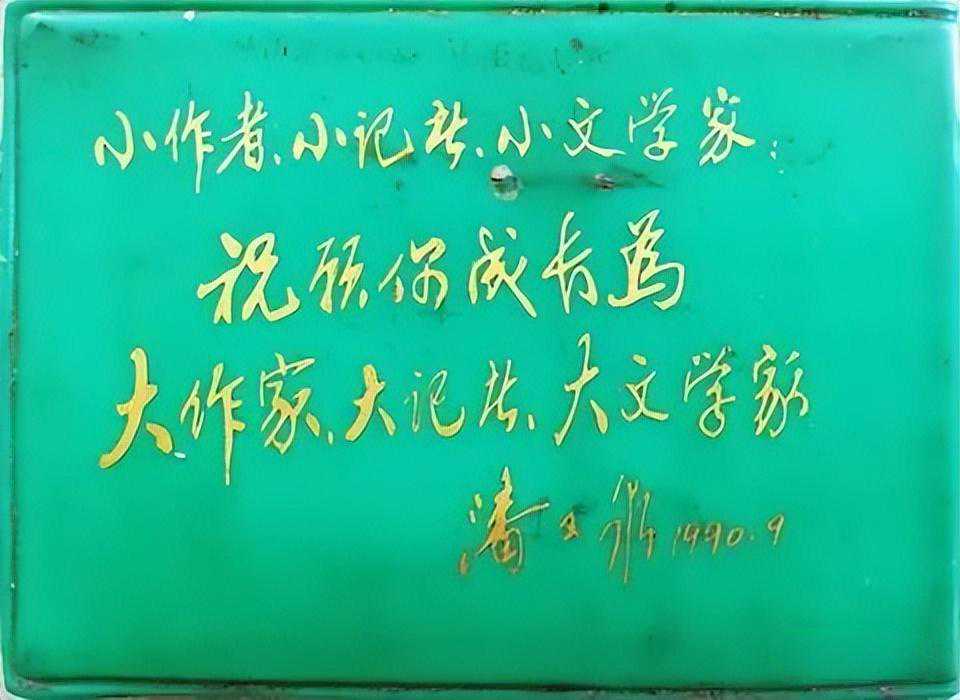 小作者、小记者、小文学家：
祝愿你成长為
大作家、大记者、大文学家
潘 1990.9